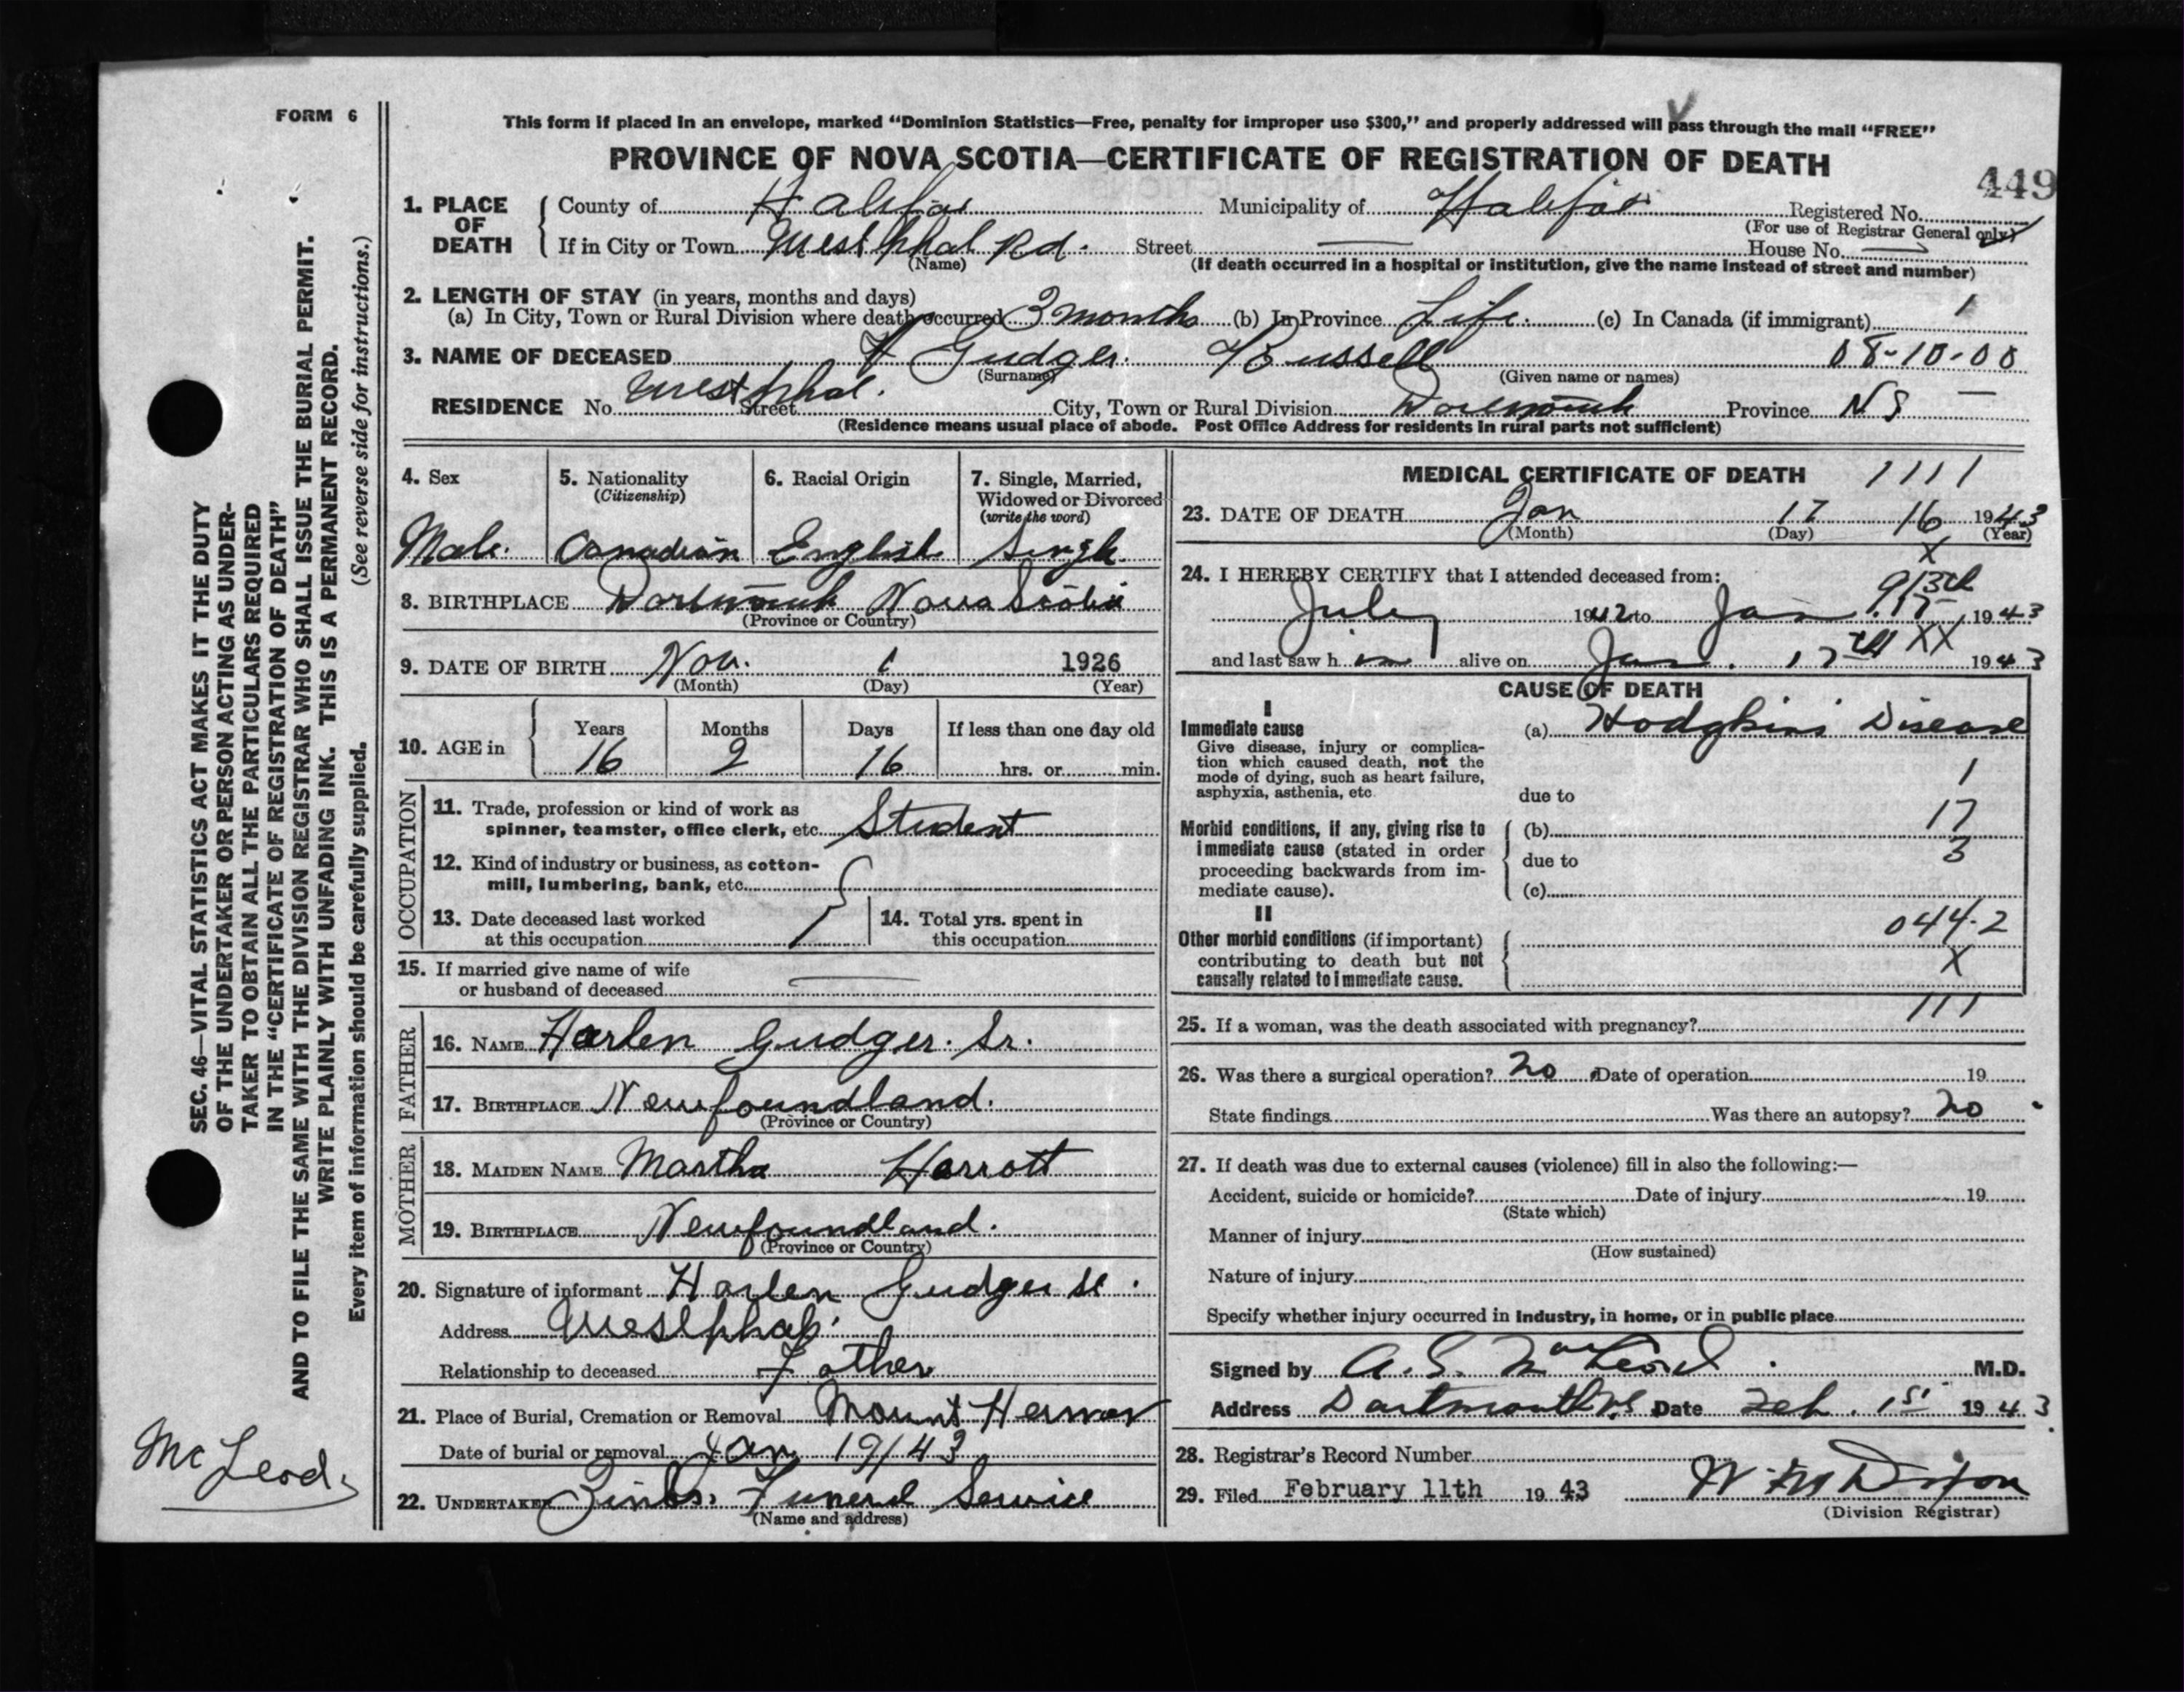 FORM 6
This form if placed in an envelope, marked "Dominion Statistics—Free, penalty for improper use $300," and properly addressed will pass through the mail "FREE"
PROVINCE OF NOVA SCOTIA—CERTIFICATE OF REGISTRATION OF DEATH
449
1. PLACE OF DEATH County of Halifax Municipality of Halifax Registered No.
(For use of Registrar General only)
If in City or Town Westphal Rd. Street — House No. —
(Name) (If death occurred in a hospital or institution, give the name instead of street and number)
2. LENGTH OF STAY (in years, months and days)
(a) In City, Town or Rural Division where death occurred 3 months (b) In Province Life. (c) In Canada (if immigrant) 1
3. NAME OF DECEASED H Gudger. Russell 08-10-00
(Surname) (Given name or names)
RESIDENCE No. Westphal. Street City, Town or Rural Division Dartmouth Province NS —
(Residence means usual place of abode. Post Office Address for residents in rural parts not sufficient)
4. Sex 5. Nationality (Citizenship) 6. Racial Origin 7. Single, Married, Widowed or Divorced (write the word)
Male. Canadian English Single
8. BIRTHPLACE Dartmouth Nova Scotia
(Province or Country)
9. DATE OF BIRTH Nov. 1 1926
(Month) (Day) (Year)
10. AGE in Years Months Days If less than one day old
16 2 16 hrs. or min.
OCCUPATION
11. Trade, profession or kind of work as
spinner, teamster, office clerk, etc. Student
12. Kind of industry or business, as cotton-
mill, lumbering, bank, etc.
13. Date deceased last worked
at this occupation
14. Total yrs. spent in
this occupation
15. If married give name of wife
or husband of deceased —
FATHER
16. NAME Harlen Gudger. Sr.
17. BIRTHPLACE Newfoundland.
(Province or Country)
MOTHER
18. MAIDEN NAME Martha Harrott
19. BIRTHPLACE Newfoundland.
(Province or Country)
20. Signature of informant Harlen Gudger Sr.
Address Westphal.
Relationship to deceased Father
21. Place of Burial, Cremation or Removal Mount Hermon
Date of burial or removal Jan 19/43
22. UNDERTAKER Zinks. Funeral Service
(Name and address)
MEDICAL CERTIFICATE OF DEATH 1111
23. DATE OF DEATH Jan 17 16 1943
(Month) (Day) (Year)
X
24. I HEREBY CERTIFY that I attended deceased from:
July 1942 to Jan 1943
and last saw him alive on Jan. 17th XX 1943
CAUSE OF DEATH
I
Immediate cause (a) Hodgkins Disease
Give disease, injury or complica-
tion which caused death, not the
mode of dying, such as heart failure,
asphyxia, asthenia, etc.
1
due to
17
Morbid conditions, if any, giving rise to (b)
immediate cause (stated in order due to 3
proceeding backwards from im-
mediate cause). (c)
II
044-2
Other morbid conditions (if important)
contributing to death but not X
causally related to immediate cause.
111
25. If a woman, was the death associated with pregnancy?
26. Was there a surgical operation? no Date of operation 19
State findings Was there an autopsy? no
27. If death was due to external causes (violence) fill in also the following:—
Accident, suicide or homicide? Date of injury 19
(State which)
Manner of injury
(How sustained)
Nature of injury
Specify whether injury occurred in industry, in home, or in public place
Signed by A. S. MacLeod. M.D.
Address Dartmouth NS Date Feb. 1st 1943.
28. Registrar's Record Number
29. Filed February 11th 1943
(Division Registrar)
SEC. 46—VITAL STATISTICS ACT MAKES IT THE DUTY
OF THE UNDERTAKER OR PERSON ACTING AS UNDER-
TAKER TO OBTAIN ALL THE PARTICULARS REQUIRED
IN THE "CERTIFICATE OF REGISTRATION OF DEATH"
AND TO FILE THE SAME WITH THE DIVISION REGISTRAR WHO SHALL ISSUE THE BURIAL PERMIT.
WRITE PLAINLY WITH UNFADING INK. THIS IS A PERMANENT RECORD.
Every item of information should be carefully supplied. (See reverse side for instructions.)
McLeod